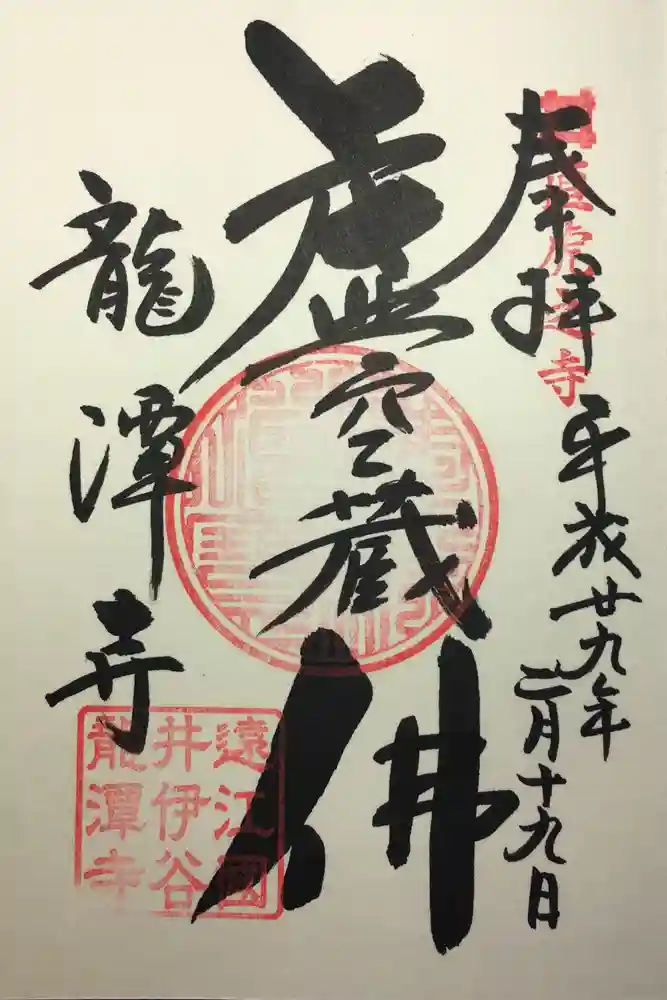 奉拝
直虎之寺
平成廿九年二月十九日
虚空蔵佛
龍潭寺
遠江國
井伊谷
龍潭寺